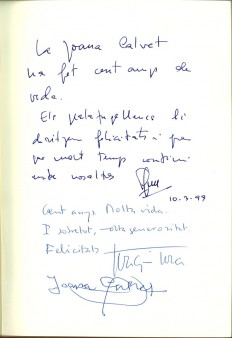 La Joana Calvet
ha fet cent anys de
vida.
Els palafrugellencs li
desitgem felicitats i que
per molt temps continuï
amb nosaltres
10-3-99
Cent anys. Molta vida.
I sobretot, molta generositat.
Felicitats
Joana